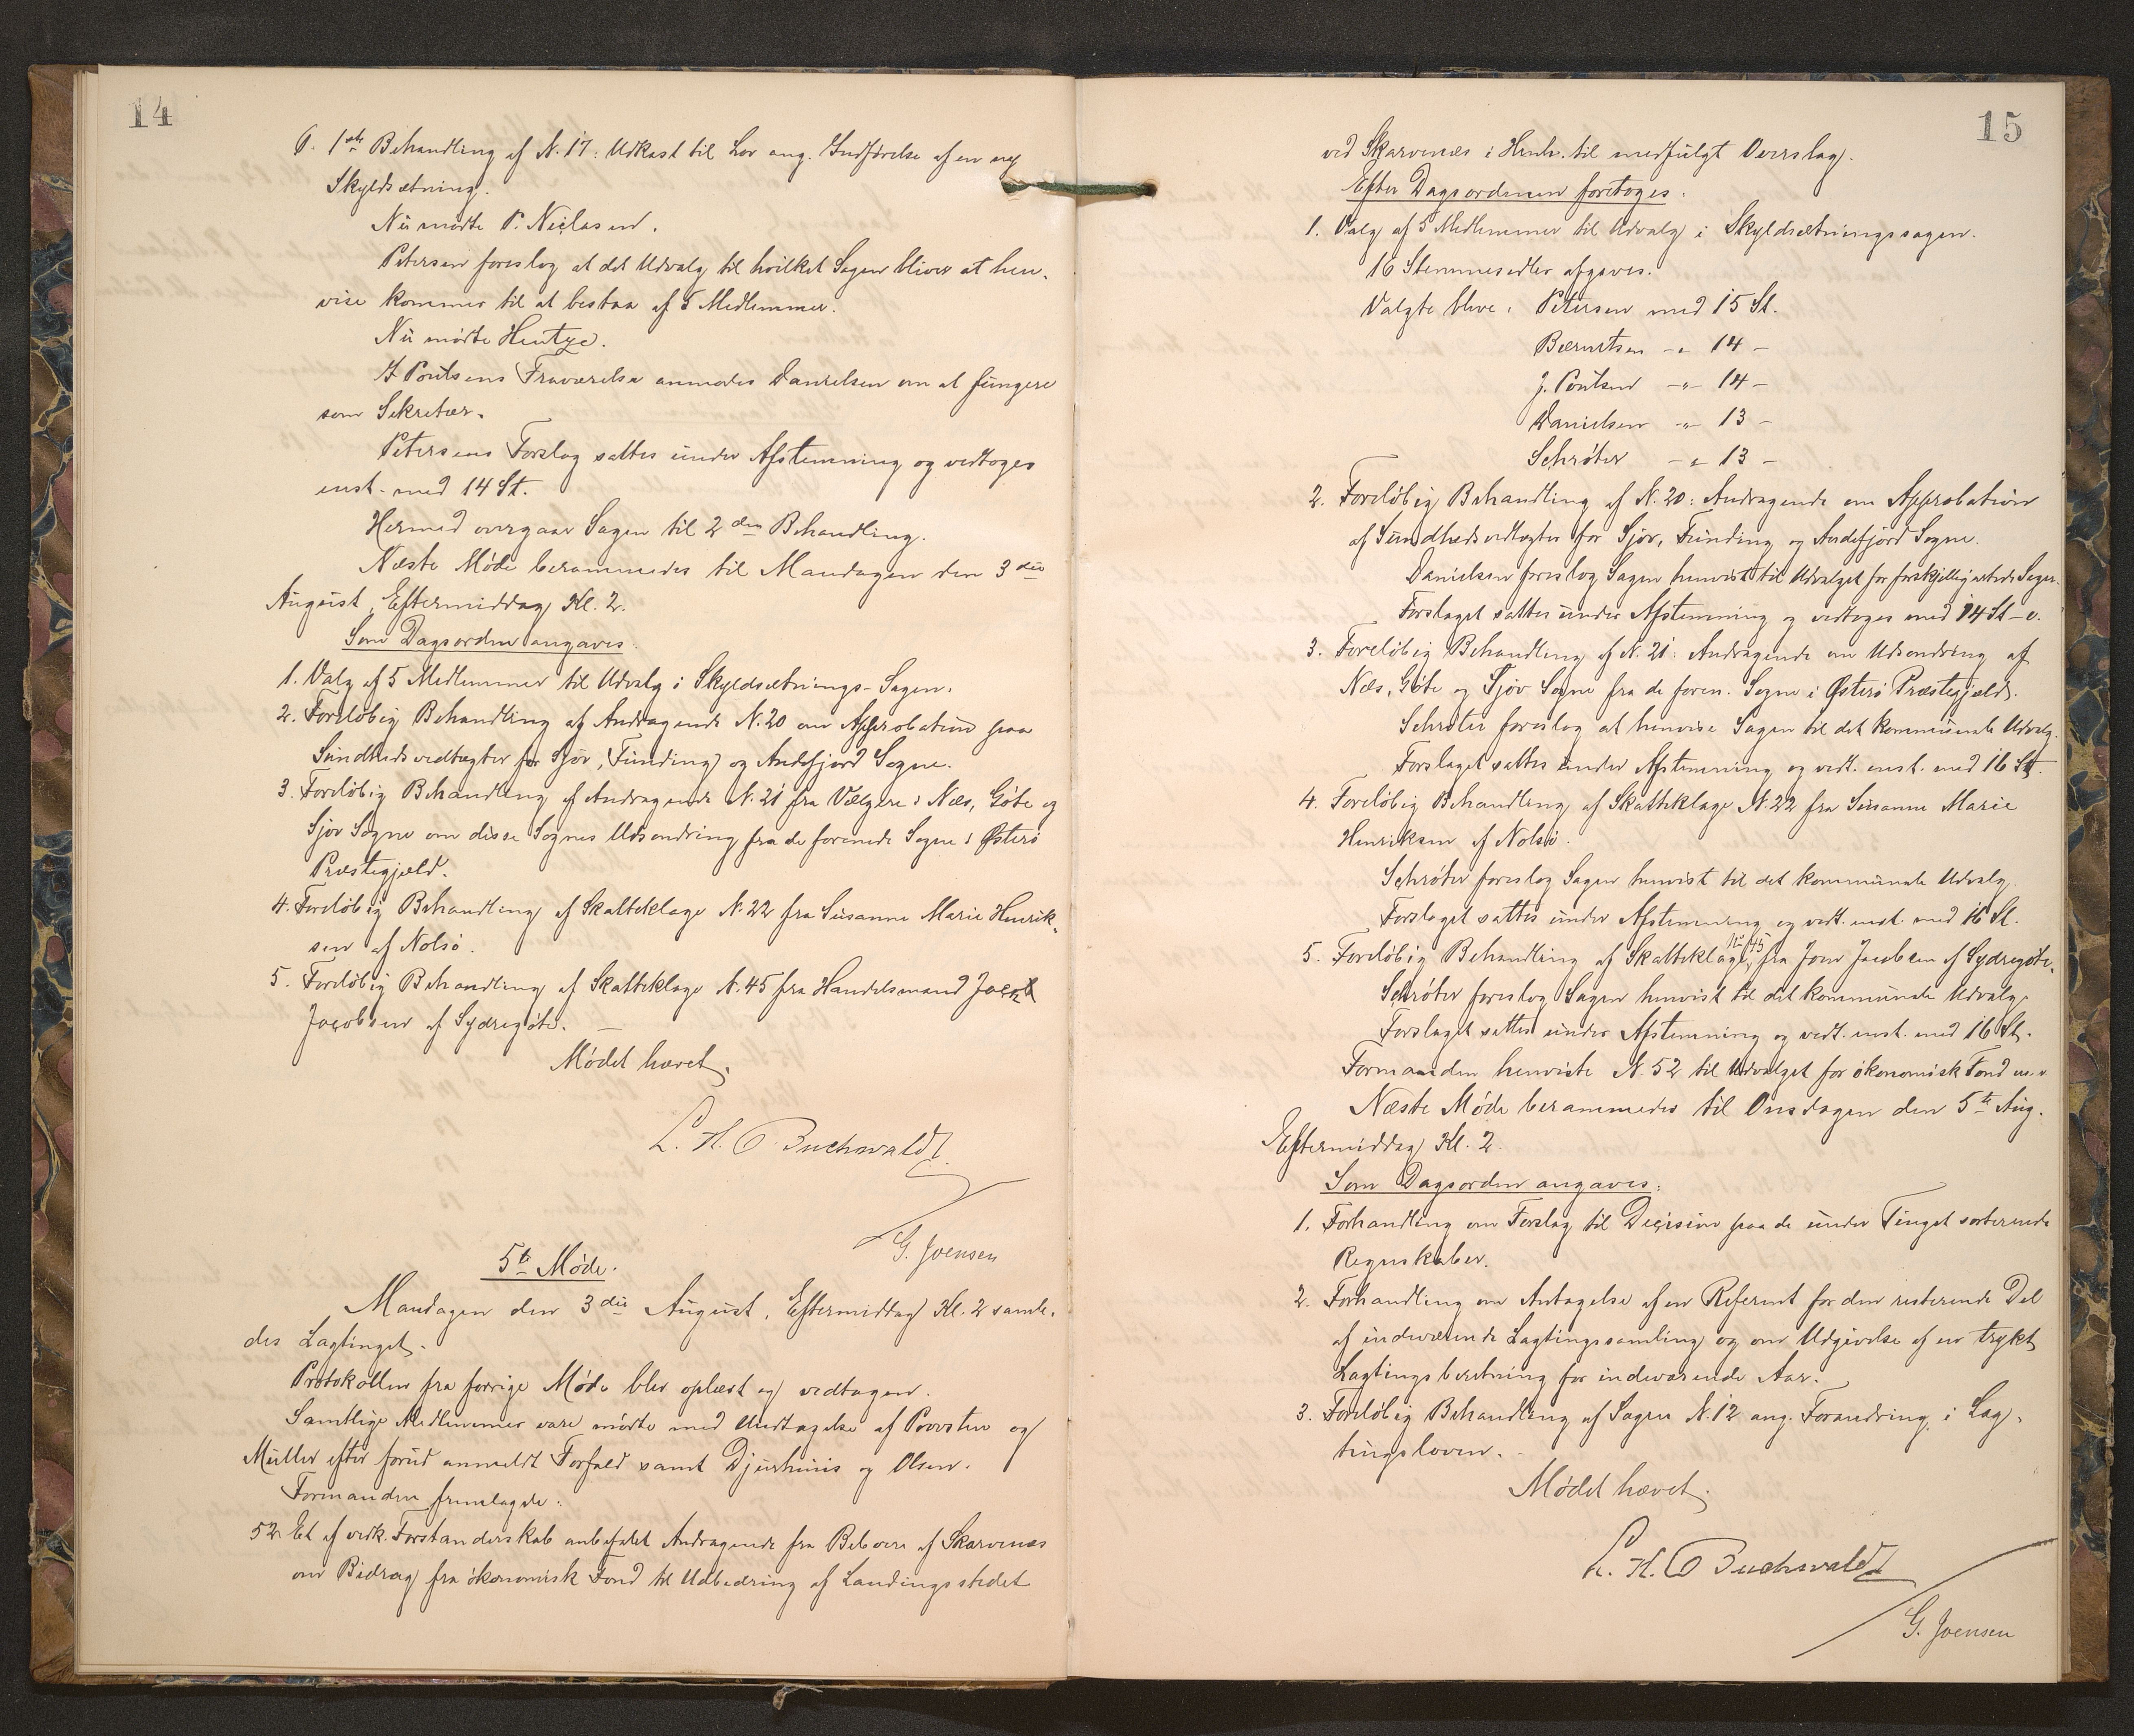 14
6. 1ste Behandling af N. 17: Udkast til Lov ang. Indførelse af en ny
Skyldsætning.
Nu mødte P. Niclasen.
Petersen foreslog at det Udvalg til hvilket Sagen bliver at hen-
vise kommer til at bestaa af 5 Medlemmer.
Nu mødte Hentze.
I Poulsens Fraværelse anmodes Danielsen om at fungere
som Sekretær.
Petersens Forslag sattes under Afstemning og vedtoges
enst. med 14 St.
Hermed overgaar Sagen til 2den Behandling.
Næste Møde berammedes til Mandagen den 3die
August, Eftermiddag Kl. 2.
Som Dagsorden angaves.
1. Valg af 5 Medlemmer til Udvalg i Skyldsætnings-Sagen.
2. Foreløbig Behandling af Andragende N. 20 om Approbation paa
Sundhedsvedtægter for Sjov, Funding og Andefjord Sogne.
3. Foreløbig Behandling af Andragende N. 21 fra Vælgere i Næs, Gøte og
Sjov Sogne om disse Sognes Udsondring fra de forenede Sogne i Østerø
Præstegjæld.
4. Foreløbig Behandling af Skatteklage N. 22 fra Susanne Marie Henrik-
sen af Nolsø.
5. Foreløbig Behandling af Skatteklage N. 45 fra Handelsmand Jacob
Jacobsen af Sydregøte. —
Mødet hævet.
L. H. C. Buchwaldt
G. Joensen
5te Møde.
Mandagen den 3die August, Eftermiddag Kl. 2 samle-
des Lagtinget.
Protokollen fra forrige Møde blev oplæst og vedtagen.
Samtlige Medlemmer vare mødte med Undtagelse af Provsten og
Müller efter forud anmeldt Forfald samt Djurhuus og Olsen.
Formanden fremlagde:
52. Et af vedk. Forstanderskab anbefalet Andragende fra Beboere af Skarvenæs
om Bidrag fra økonomisk Fond til Udbedring af Landingsstedet
15
ved Skarvenæs i Henh. til medfulgt Overslag.
Efter Dagsordenen foretoges.
1. Valg af 5 Medlemmer til Udvalg i Skyldsætningssagen.
16 Stemmesedler afgaves.
Valgte bleve: Petersen med 15 St.
Bærentsen -"- 14 -
J. Poulsen -"- 14 -
Danielsen -"- 13 -
Schrøter -"- 13 -
2. Foreløbig Behandling af N. 20: Andragende om Approbation
af Sundhedsvedtægter for Sjov, Funding og Andefjord Sogne.
Danielsen foreslog Sagen henvist til Udvalget for forskjelligartede Sager.
Forslaget sattes under Afstemning og vedtoges med 14 St - 0.
3. Foreløbig Behandling af N. 21: Andragende om Udsondring af
Næs, Gøte og Sjov Sogne fra de foren. Sogne i Østerø Præstegjeld.
Schrøter foreslog at henvise Sagen til det kommunale Udvalg.
Forslaget sattes under Afstemning og vedt. enst. med 16 St.
4. Foreløbig Behandling af Skatteklage N. 22 fra Susanne Marie
Henriksen af Nolsø.
Schrøter foreslog Sagen henvist til det kommunale Udvalg.
Forslaget sattes under Afstemning og vedt. enst. med 16 St.
5. Foreløbig Behandling af Skatteklage N. 45 fra Jacobsen af Sydregøte.
Schrøter foreslog Sagen henvist til det kommunale Udvalg.
Forslaget sattes under Afstemning og vedt. enst. med 16 St.
Formanden henviste N. 52 til Udvalget for økonomisk Fond m.v.
Næste Møde berammedes til Onsdagen den 5te Aug.
Eftermiddag Kl. 2.
Som Dagsorden angaves:
1. Forhandling om Forslag til Decision paa de under Tinget sorterende
Regnskaber.
2. Forhandling om Antagelse af en Referent for den resterende Del
af indeværende Lagtingssamling og om Udgivelse af en trykt
Lagtingsberetning for indeværende Aar.
3. Foreløbig Behandling af Sagen N. 12 ang. Forandring i Lag-
tingsloven. -
Mødet hævet.
L. H. C. Buchwaldt
G. Joensen